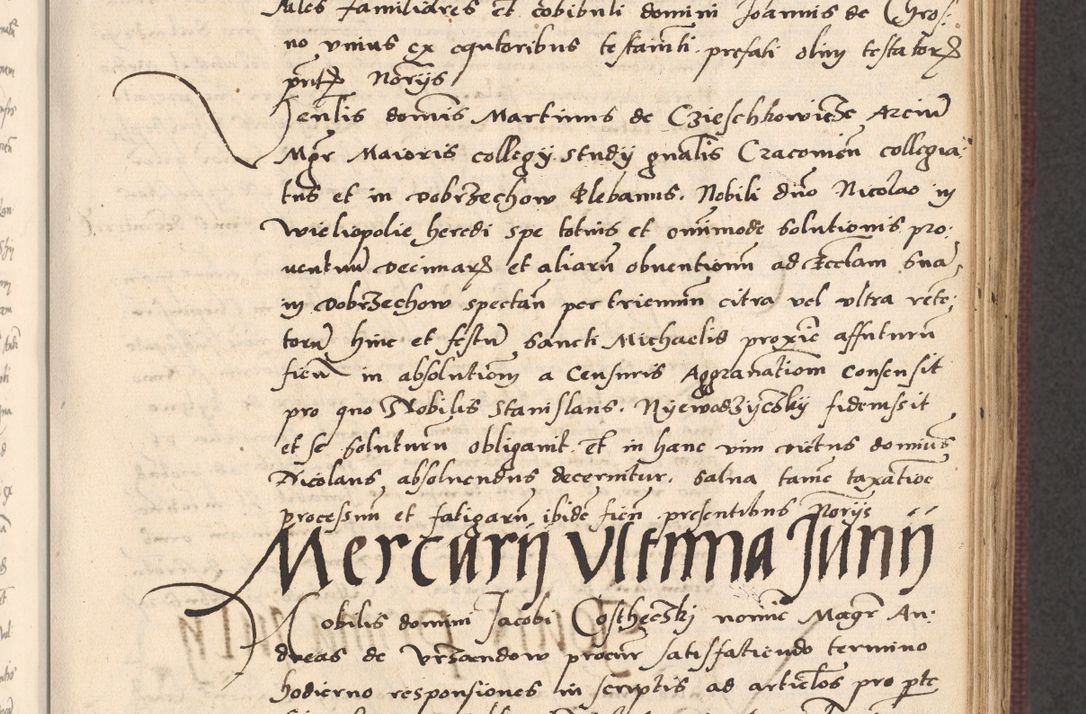 tales familiares et cobibuli domini Joannis de Chros-
no vnius ex exequtoribus testamti prefati olim testatoris
pntibus Noriis
Jentis dominus Martinus de Czieschkowicze Arcium
Mgr Maioris collegy study gnalis Cracouien collegia-
tus et in Dobrzechow Plebanus. Nobili duo Nicolao in
Wieliopolie heredi spe totius et omnimode solutionis pro-
uentuum Decimarum et aliarum obuentionum ad Ecclam suam
in Dobrzechow spectan per triennium citra vel vltra
hinc et festum Sancti Michaelis proxime affuturum
fien in absolutionem a Censuris Aggrauationem consensit
pro quo Nobilis Stanislaus. Nyewodzyczky fideiussit
et se soluturum obligauit. Et in hanc vim victus dominus
Nicolaus absoluendus decernitur. Salua tamen taxatione
processuum et fatigarum ibidem fien presentibus Noriis
Mercurij Vltima Junij
Nobilis domini Jacobi Costheczki nomine Magr An-
dreas de Vrzandow procur satisfatiendo termino
hodierno responsiones in scriptis ad articulos pro parte